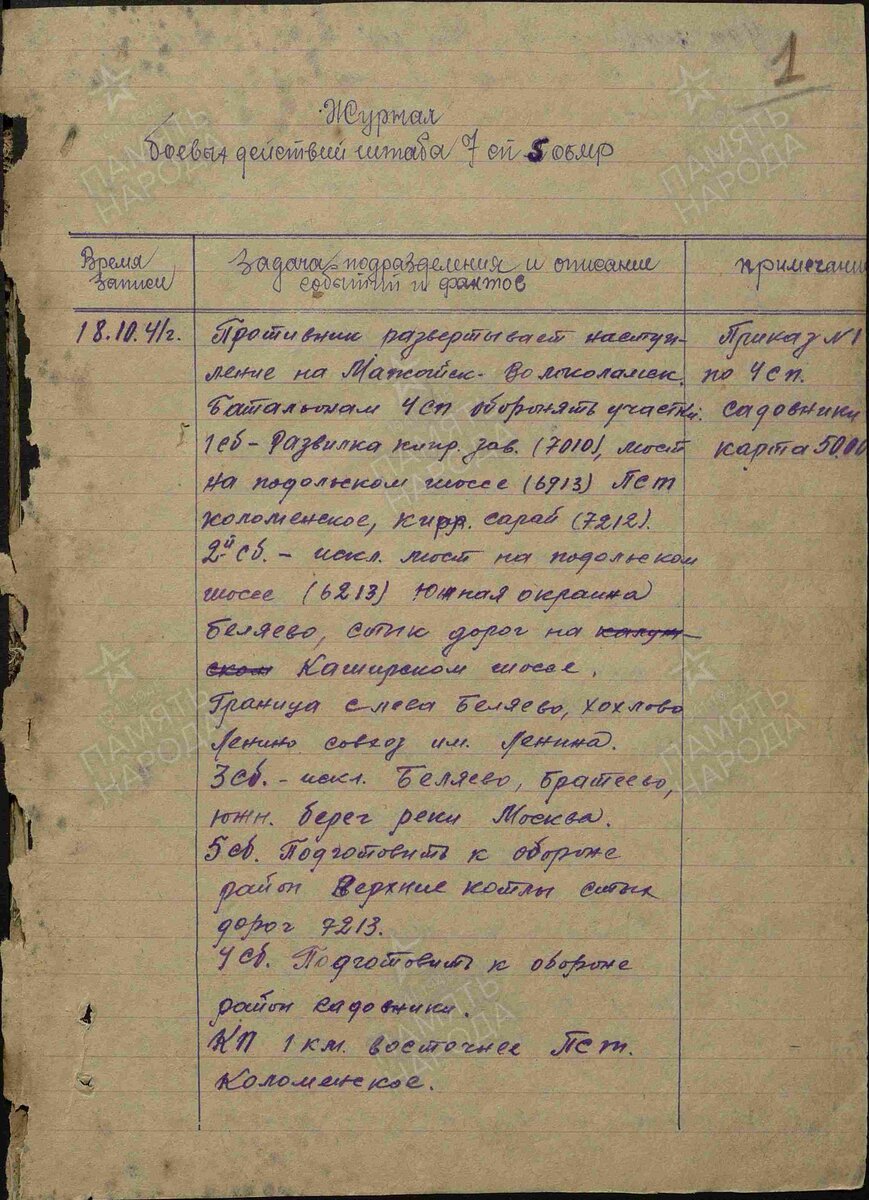 1
Журнал
боевых действий штаба 7 сп 5 обмр
Время записи
Задача подразделения и описание событий и фактов
примечани
18.10.41г.
Противник развертывает наступ-
ление на Можайск - Волоколамск.
Батальонам 4 сп оборонять участки:
1сб - Развилка кирр. зав. (7010), мост
на подольском шоссе (6913) Пст
Коломенское, кирп. сарай (7212).
2й сб. - искл. мост на подольском
шоссе (6213) Южная окраина
Беляево, стык дорог на калуж-
ском Каширском шоссе.
Граница слева Беляево, Хохлово
Ленино совхоз им. Ленина.
3 сб. - искл. Беляево, Братеево,
южн. берег реки Москва.
5 сб. Подготовить к обороне
район Верхние котлы стык
дорог 7213.
4 сб. Подготовить к обороне
район садовники.
КП 1 км. восточнее Пст.
Коломенское.
Приказ N1
по 4 сп.
садовники
карта 50.00
ПАМЯТЬ НАРОДА